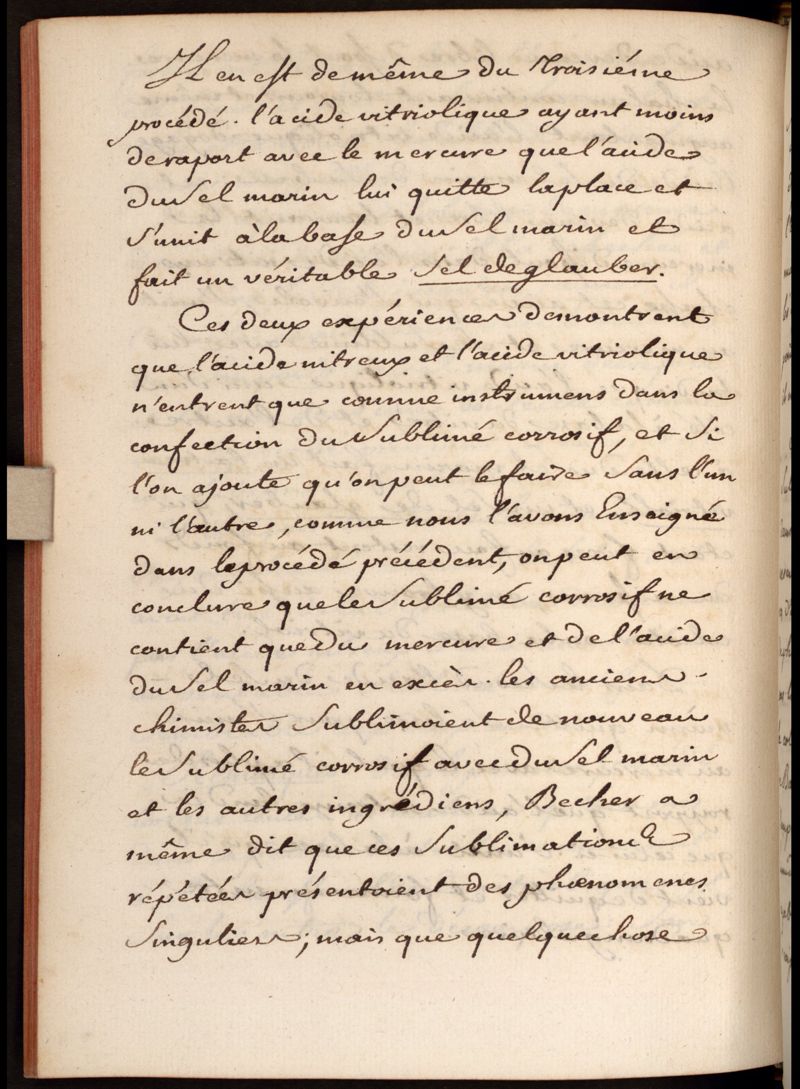 Il en est de même du troisiéme
procédé. l'acide vitriolique ayant moins
de raport avec le mercure que l'acide
du Sel marin lui quitte la place et
s'unit à la base du Sel marin et
fait un véritable Sel de glauber.
Ces deux expériences demontrent
que l'acide nitreux et l'acide vitriolique
n'entrent que comme instrumens dans la
confection du Sublimé corrosif, et Si
l'on ajoute qu'on peut le faire Sans l'un
ni l'autre, comme nous l'avons Enseigné
dans le procédé précédent, on peut en
conclure que le Sublimé corrosif ne
contient que du mercure et de l'acide
du Sel marin en excès. les anciens
chimistes Sublimoient de nouveau
le Sublimé corrosif avec du Sel marin
et les autres ingrédiens, Becher a
même dit que ces Sublimations
répétées présentoient des phœnomenes
Singuliers; mais que quelque chose